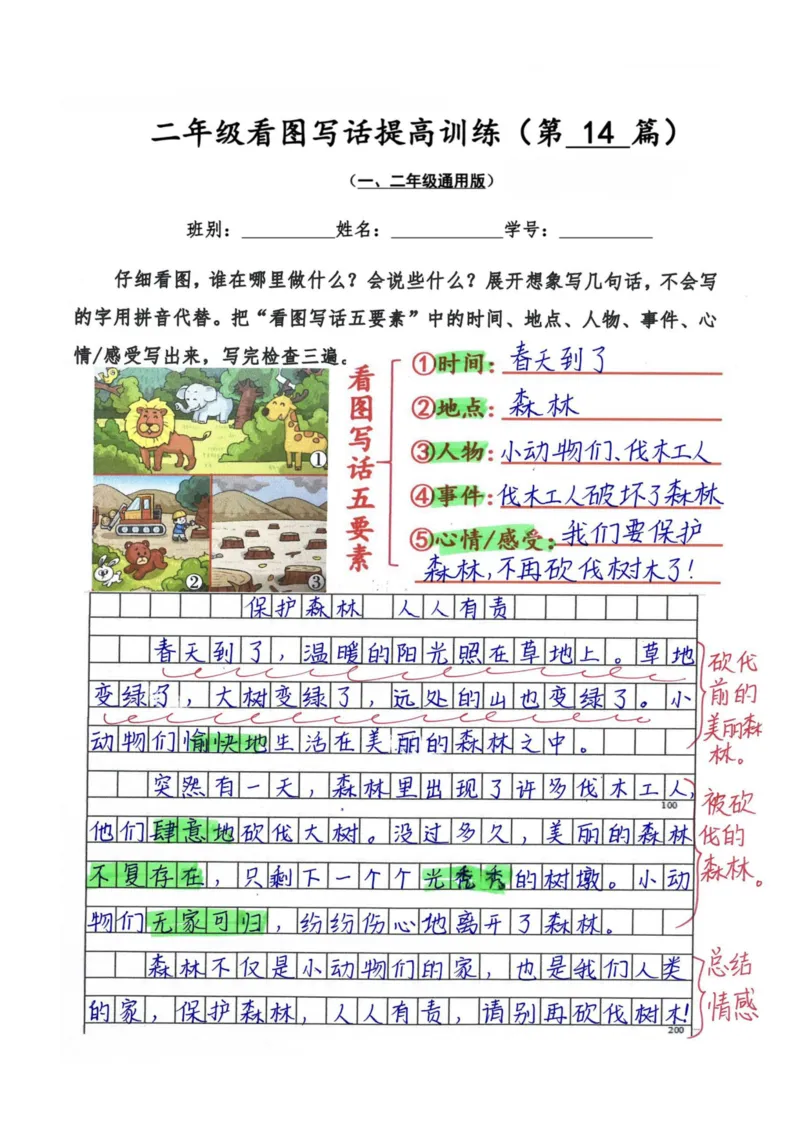 二年级看图写话提高训练（第 14 篇）
（一、二年级通用版）
班别： 姓名： 学号：
仔细看图，谁在哪里做什么？会说些什么？展开想象写几句话，不会写
的字用拼音代替。把“看图写话五要素”中的时间、地点、人物、事件、心
情/感受写出来，写完检查三遍。
看图写话五要素
①时间：春天到了
②地点：森林
③人物：小动物们、伐木工人
④事件：伐木工人破坏了森林
⑤心情/感受：我们要保护
森林，不再砍伐树木了！
①
②
③
保护森林 人人有责
春天到了，温暖的阳光照在草地上。草地
变绿了，大树变绿了，远处的山也变绿了。小
动物们愉快地生活在美丽的森林之中。
砍伐
前的
美丽森
林。
突然有一天，森林里出现了许多伐木工人，
100
他们肆意地砍伐大树。没过多久，美丽的森林
不复存在，只剩下一个个光秃秃的树墩。小动
物们无家可归，纷纷伤心地离开了森林。
被砍
伐的
森林。
森林不仅是小动物们的家，也是我们人类
的家，保护森林，人人有责，请别再砍伐树木！
200
总结
情感